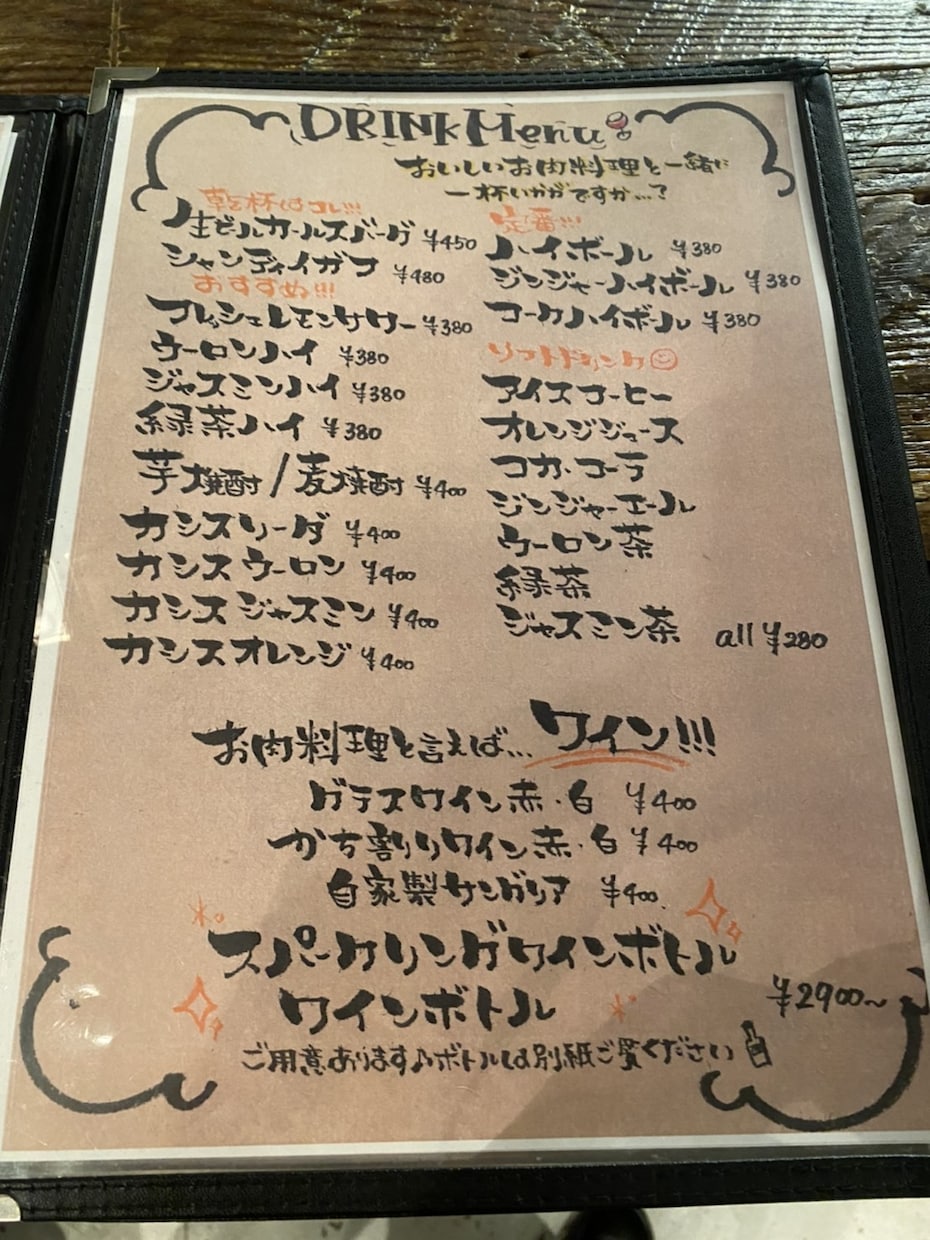 DRINK Menu
おいしいお肉料理と一緒に
一杯いかがですか…?
乾杯はコレ!!!
生ビールカールスバーグ ¥450
シャンディイガフ ¥480
おすすめ!!!
フレッシュレモンサワー ¥380
ウーロンハイ ¥380
ジャスミンハイ ¥380
緑茶ハイ ¥380
芋焼酎/麦焼酎 ¥400
カシスソーダ ¥400
カシスウーロン ¥400
カシスジャスミン ¥400
カシスオレンジ ¥400
定番!!!
ハイボール ¥380
ジンジャーハイボール ¥380
コークハイボール ¥380
ソフトドリンク
アイスコーヒー
オレンジジュース
コカ・コーラ
ジンジャーエール
ウーロン茶
緑茶
ジャスミン茶 all ¥280
お肉料理と言えば… ワイン!!!
グラスワイン赤・白 ¥400
かち割りワイン赤・白 ¥400
自家製サングリア ¥400
スパークリングワインボトル
ワインボトル ¥2900~
ご用意あります♪ボトルは別紙ご覧ください